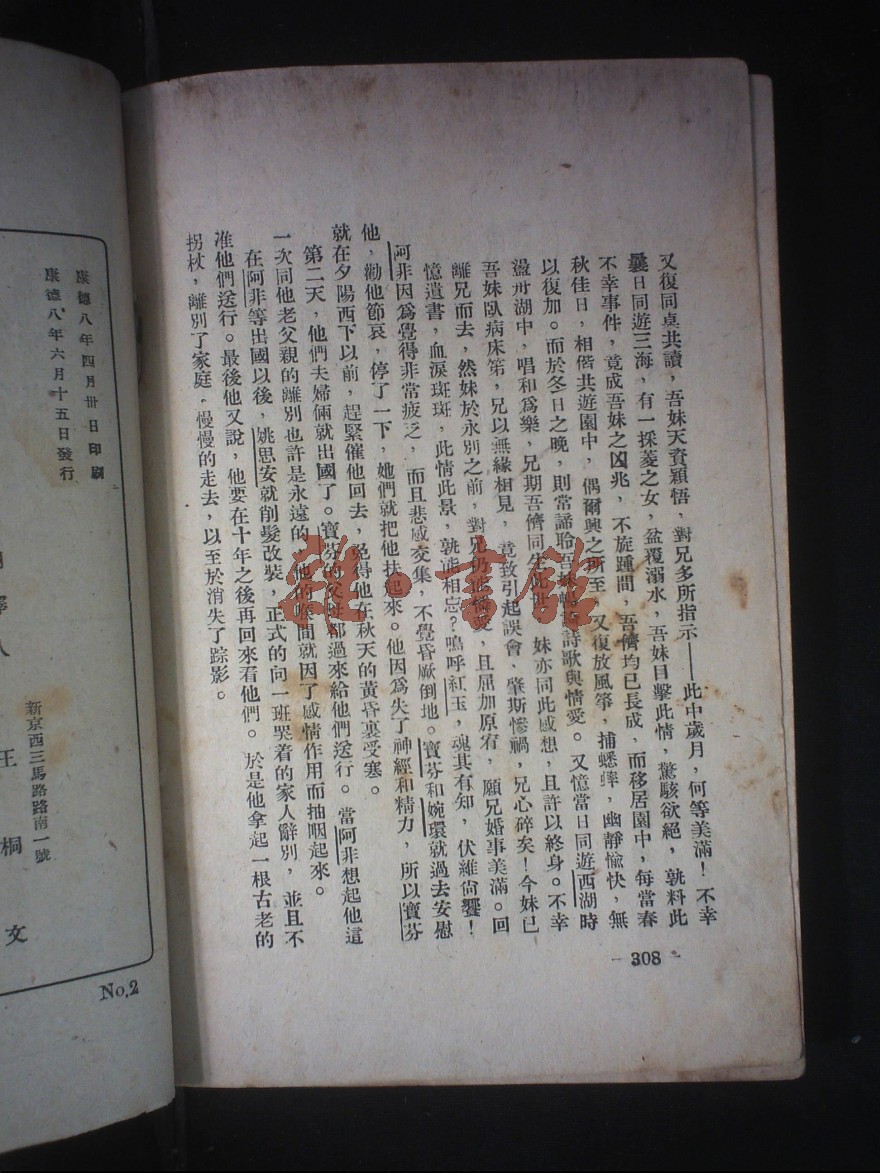 又復同桌共讀，吾妹天資穎悟，對兄多所指示——此中歲月，何等美滿！不幸
曩日同遊三海，有一採菱之女，盆覆溺水，吾妹目擊此情，驚駭欲絕，孰料此
不幸事件，竟成吾妹之凶兆，不旋踵間，吾儕均已長成，而移居園中，每當春
秋佳日，相偕共遊園中，偶爾興之所至，又復放風箏，捕蟋蟀，幽靜愉快，無
以復加。而於冬日之晚，則常諦聆吾妹暢談詩歌與情愛。又憶當日同遊西湖時
盪舟湖中，唱和爲樂，兄期吾儕同生此世，妹亦同此感想，且許以終身。不幸
吾妹臥病床笫，兄以無緣相見，竟致引起誤會，肇斯慘禍，兄心碎矣！今妹已
離兄而去，然妹於永別之前，對兄仍此憐愛，且屈加原宥，願兄婚事美滿。回
憶遺書，血淚斑斑，此情此景，孰能相忘？嗚呼紅玉，魂其有知，伏維尙饗！
阿非因爲覺得非常疲乏，而且悲感交集，不覺昏厥倒地。寶芬和婉環就過去安慰
他，勸他節哀，停了一下，她們就把他扶起來。他因爲失了神經和精力，所以寶芬
就在夕陽西下以前，趕緊催他回去，免得他在秋天的黃昏裏受寒。
第二天，他們夫婦倆就出國了。寶芬的父母都過來給他們送行。當阿非想起他這
一次同他老父親的離別也許是永遠的，他的喉間就因了感情作用而抽咽起來。
在阿非等出國以後，姚思安就削髮改裝，正式的向一班哭着的家人辭別，並且不
准他們送行。最後他又說，他要在十年之後再回來看他們。於是他拿起一根古老的
拐杖，離別了家庭，慢慢的走去，以至於消失了踪影。
- 308 -
康德八年四月卅日印刷
康德八年六月十五日發行
譯人
王桐文
新京西三馬路路南一號
No.2
雅·書館